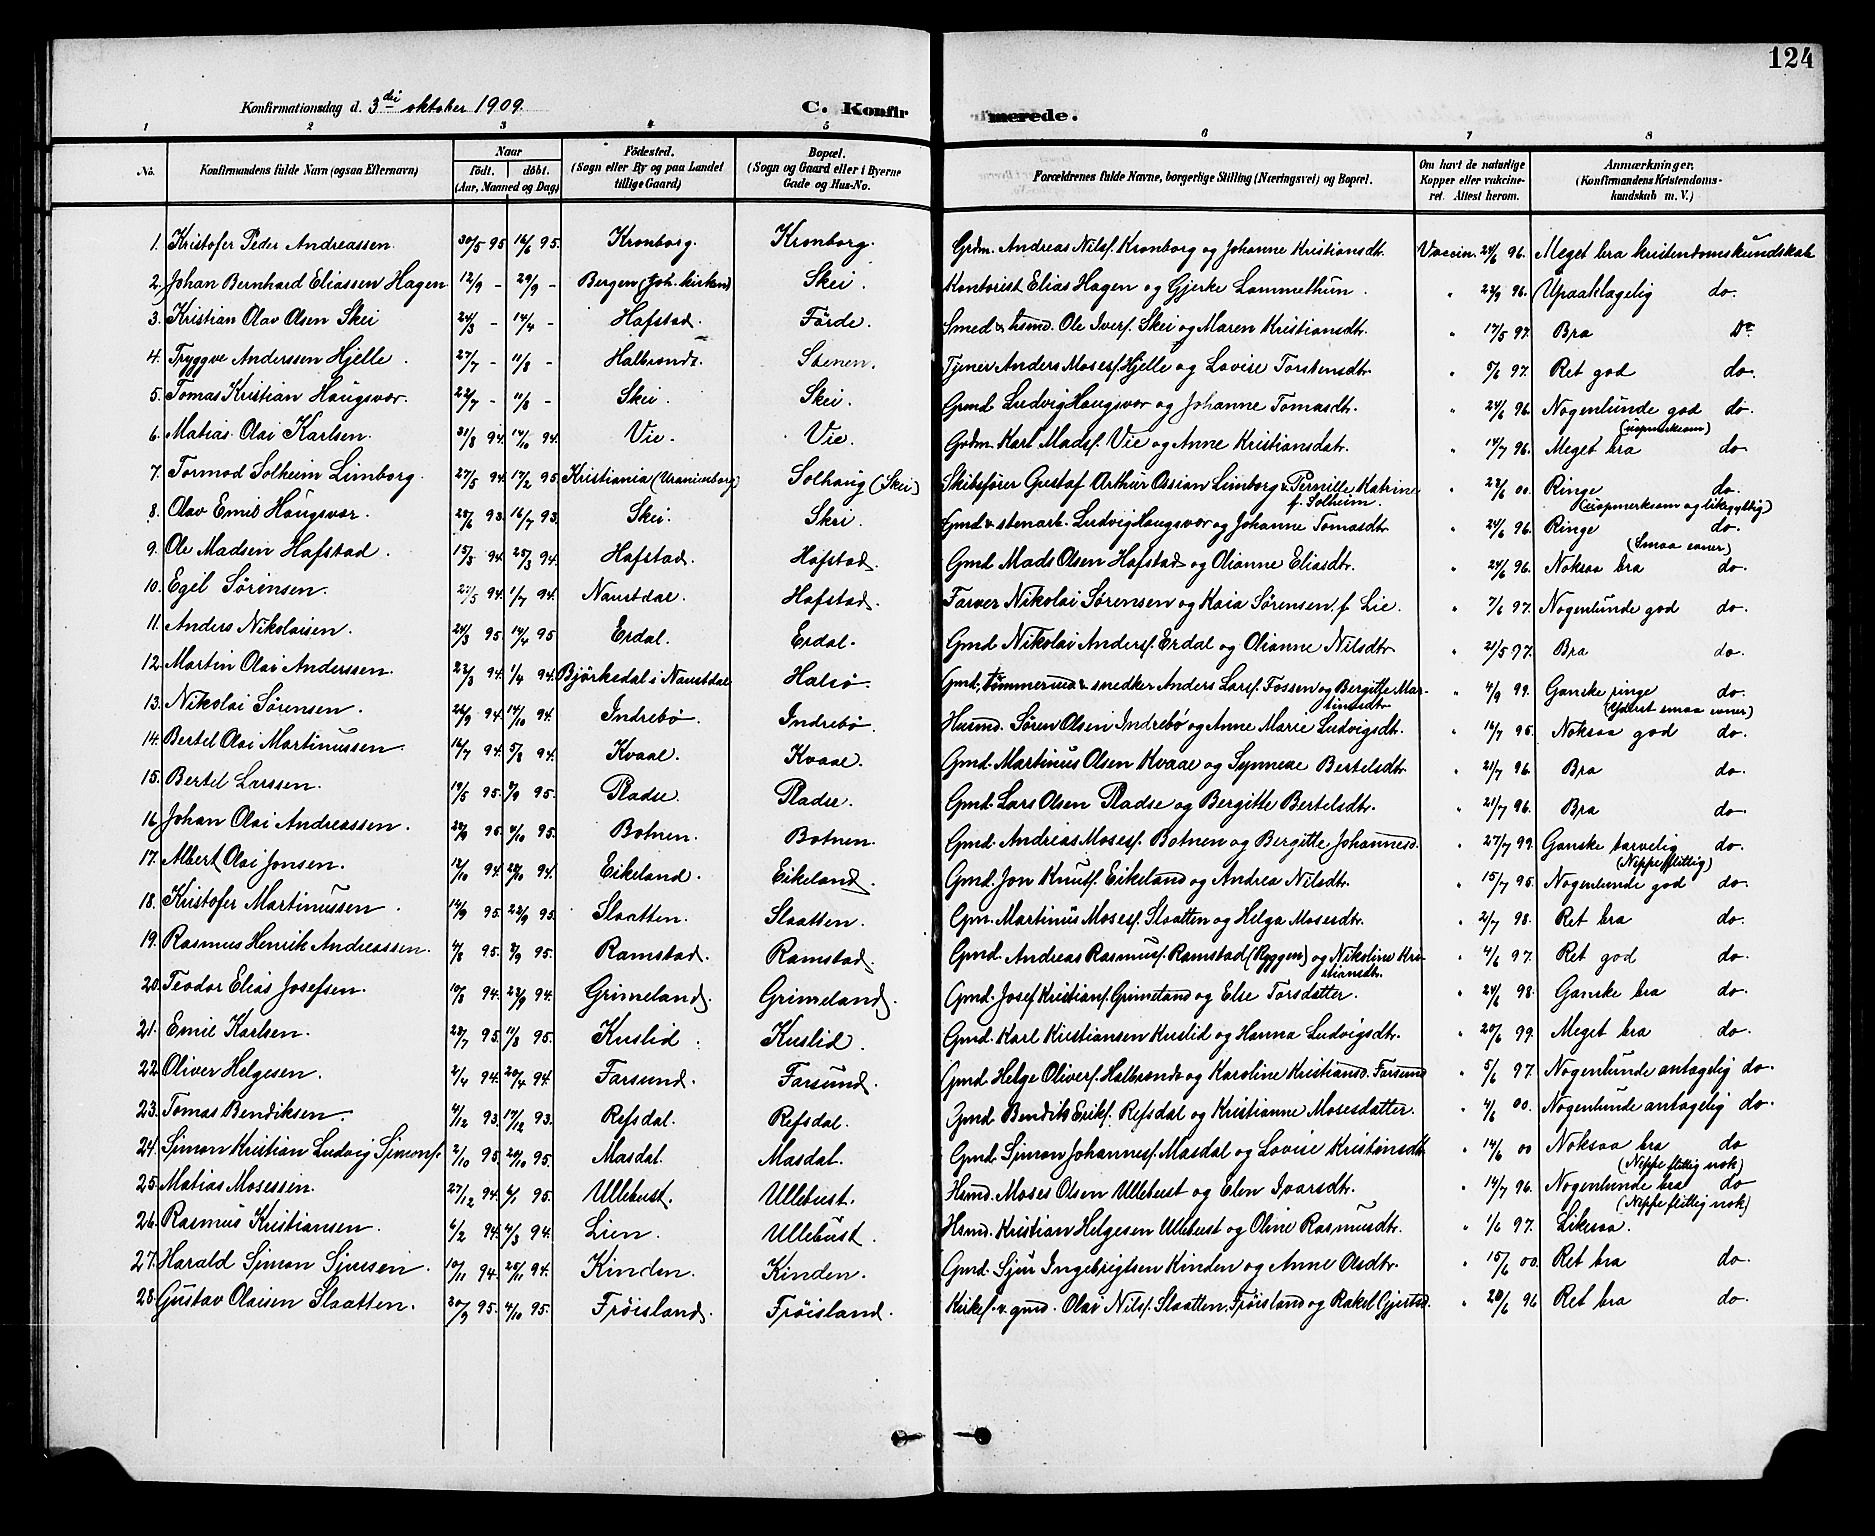 124
Konfirmationsdag d. 3die oktober 1909. C. Konfirmerede.
1 2 3 4 5 6 7 8
No. Konfirmandens fulde Navn (ogsaa Efternavn) Naar födt. döbt. (Aar, Maaned og Dag) Födested. (Sogn eller By og paa Landet tillige Gaard) Bopæl. (Sogn og Gaard eller i Byerne Gade og Hus-No. Forældrenes fulde Navne, borgerlige Stilling (Næringsvei) og Bopæl. Om havt de naturlige Kopper eller vakcineret. Attest herom. Anmærkninger. (Konfirmandens Kristendomskundskab m. V.)
1. Kristofer Peder Andreassen. 30/5 95 16/6 95. Kronborg. Kronborg. Grdm. Andreas Nilsf. Kronborg og Johanne Kristiansdtr. Vaccin. 24/6 96. Meget bra kristendomskundskab
2. Johan Bernhard Eliassen Hagen 12/9 - 29/9 - Bergen (Joh. kirken) Skei. Kontorist Elias Hagen og Gjerke Lammethun. " 23/9 96. Upaaklagelig do.
3. Kristian Olav Olsen Skei 24/3 - 14/4 - Hafstad. Förde. Smed & husmd. Ole Iversf. Skei og Maren Kristiansdtr. " 17/5 97. Bra Do
4. Tryggve Anderssen Hjelle. 27/7 - 11/8 - Halbrendt. Stenen. Tjener Anders Mosesf. Hjelle og Lovise Torstensdtr. " 5/6 97. Ret god do.
5. Tomas Kristian Haugsvær. 22/7 - 11/8 - Skei. Skei. Gmd Ludvig Haugsvær og Johanne Tomasdtr. " 24/6 96. Nogenlunde god do. (uopmerksom)
6. Matias Olai Karlsen. 31/8 94. 14/10 94. Vie. Vie. Grdm. Karl Madsf. Vie og Anne Kristiansdatr. " 14/7 96. Meget bra do
7. Tormod Solheim Limborg. 27/5 94. 17/2 95. Kristiania (Uranienborg) Solhaug (Skei) Skibsfører Gustaf Arthur Ossian Limborg & Pernille Katrine f. Solheim. " 23/6 00. Ringe do. (uopmerksom og likegyltig)
8. Olav Emil Haugsvær. 25/6 93. 16/7 93. Skei. Skei. Gmd & stenarb. Ludvig Haugsvær og Johanne Tomasdtr " 24/6 96. Ringe do. (Smaa evner)
9. Ole Madsen Hafstad. 15/3 94. 25/3 94. Hafstad. Hafstad. Gmd Mads Olsen Hafstad og Olianne Eliasdtr. " 24/6 96. Noksaa bra do.
10. Egil Sörensen. 21/5 94. 1/7 94. Naustdal. Hafstad. Farver Nikolai Sörensen og Kaia Sörensen f. Lie. " 7/6 97. Nogenlunde god do.
11. Anders Nikolaisen. 24/3 95 14/4 95 Erdal. Erdal. Gmd Nikolai Andersf. Erdal og Olianne Nilsdtr " 21/5 97. Bra do.
12. Martin Olai Anderssen. 23/3 94. 1/4 94. Bjørkedal i Naustdal Halsö. Gmd, tömmermd & snedker Anders Larsf. Fossen og Bergitte Martinsdtr " 4/9 99. Ganske ringe do. (Yderst smaa evner)
13. Nikolai Sörensen. 26/9 94. 14/10 94. Indrebö. Indrebö. Husmd. Sören Olsen Indrebö og Anne Marie Ludvigsdtr. " 16/7 95. Noksaa god do.
14. Bertel Olai Martinussen. 16/7 94. 5/8 94. Kvaal. Kvaal. Gmd. Martinus Olsen Kvaal og Synneve Bertelsdtr " 21/7 96. Bra do.
15. Bertel Larssen. 19/5 95. 2/9 95. Pladse. Pladse. Gmd. Lars Olsen Pladse og Bergitte Bertelsdtr. " 21/7 96. Bra do
16. Johan Olai Andreassen. 20/9 95. 4/10 95. Botnen. Botnen. Gmd Andreas Mosesf. Botnen og Bergitte Johannesd. " 27/7 99. Ganske tarvelig do. (Neppe flittig)
17. Albert Olai Jonsen. 12/10 94. 28/10 94. Eikeland. Eikeland. Gmd. Jon Knutsf. Eikeland og Andrea Nilsdtr. " 15/7 95. Nogenlunde god do.
18. Kristofer Martinussen. 14/9 95. 22/9 95. Slaatten. Slaatten. Gm. Martinus Mosesf. Slaatten og Helga Mosesdtr. " 2/7 98. Ret bra do.
19. Rasmus Henrik Andreassen. 4/8 95. 2/9 95. Ramstad. Ramstad. Gmd. Andreas Rasmusf. Ramstad (Ryggen) og Nikoline Kristiansdtr. " 4/6 97. Ret god do.
20. Teodor Elias Josefsen. 10/8 94. 23/9 94. Grimeland. Grimeland. Gmd. Josef Kristiansf. Grimeland og Else Torsdatter. " 24/6 98. Ganske bra do.
21. Emil Karlsen. 28/7 95. 11/8 95. Kuslid. Kuslid. Gmd. Karl Kristiansen Kuslid og Hanna Ludvigsdtr. " 20/6 99. Meget bra do.
22. Oliver Helgesen. 2/4 94. 20/4 94. Farsund. Farsund. Gmd Helge Oliversf. Halbrendt og Karoline Kristiansd. Farsund " 5/6 97. Nogenlunde antagelig do.
23. Tomas Bendiksen. 4/12 93. 17/12 93. Refsdal. Refsdal. Gmd Bendik Eriksf. Refsdal og Kristianne Mosesdatter. " 4/6 00. Nogenlunde antagelig do.
24. Simon Kristian Ludvig Simonsf. 2/10 95. 20/10 95. Masdal. Masdal. Gmd. Simon Johannesf. Masdal og Lovise Kristensdtr " 14/6 00 Noksaa bra do (Neppe flittig nok)
25. Matias Mosessen. 27/12 94. 6/1 95. Ullebust. Ullebust. Hsmd. Moses Olsen Ullebust og Elen Ivarsdtr. " 14/7 96. Nogenlunde bra do (Neppe flittig nok)
26. Rasmus Kristiansen. 6/2 94. 4/3 94. Lien. Ullebust. Hsmd. Kristian Helgesen Ullebust og Oline Rasmusdtr. " 1/6 97. Likesaa.
27. Harald Simon Sjursen. 10/11 94. 25/11 94. Kinden. Kinden. Gmd. Sjur Ingebrigtsen Kinden og Anne Olsdtr. " 15/6 00. Ret bra do.
28. Gustav Olaisen Slaatten. 20/9 95. 4/10 95. Fröisland. Fröisland. Kirkes. & gmd. Olai Nilsf. Slaatten, Fröisland og Rakel Gjertsd. " 28/6 96 Ret bra do.